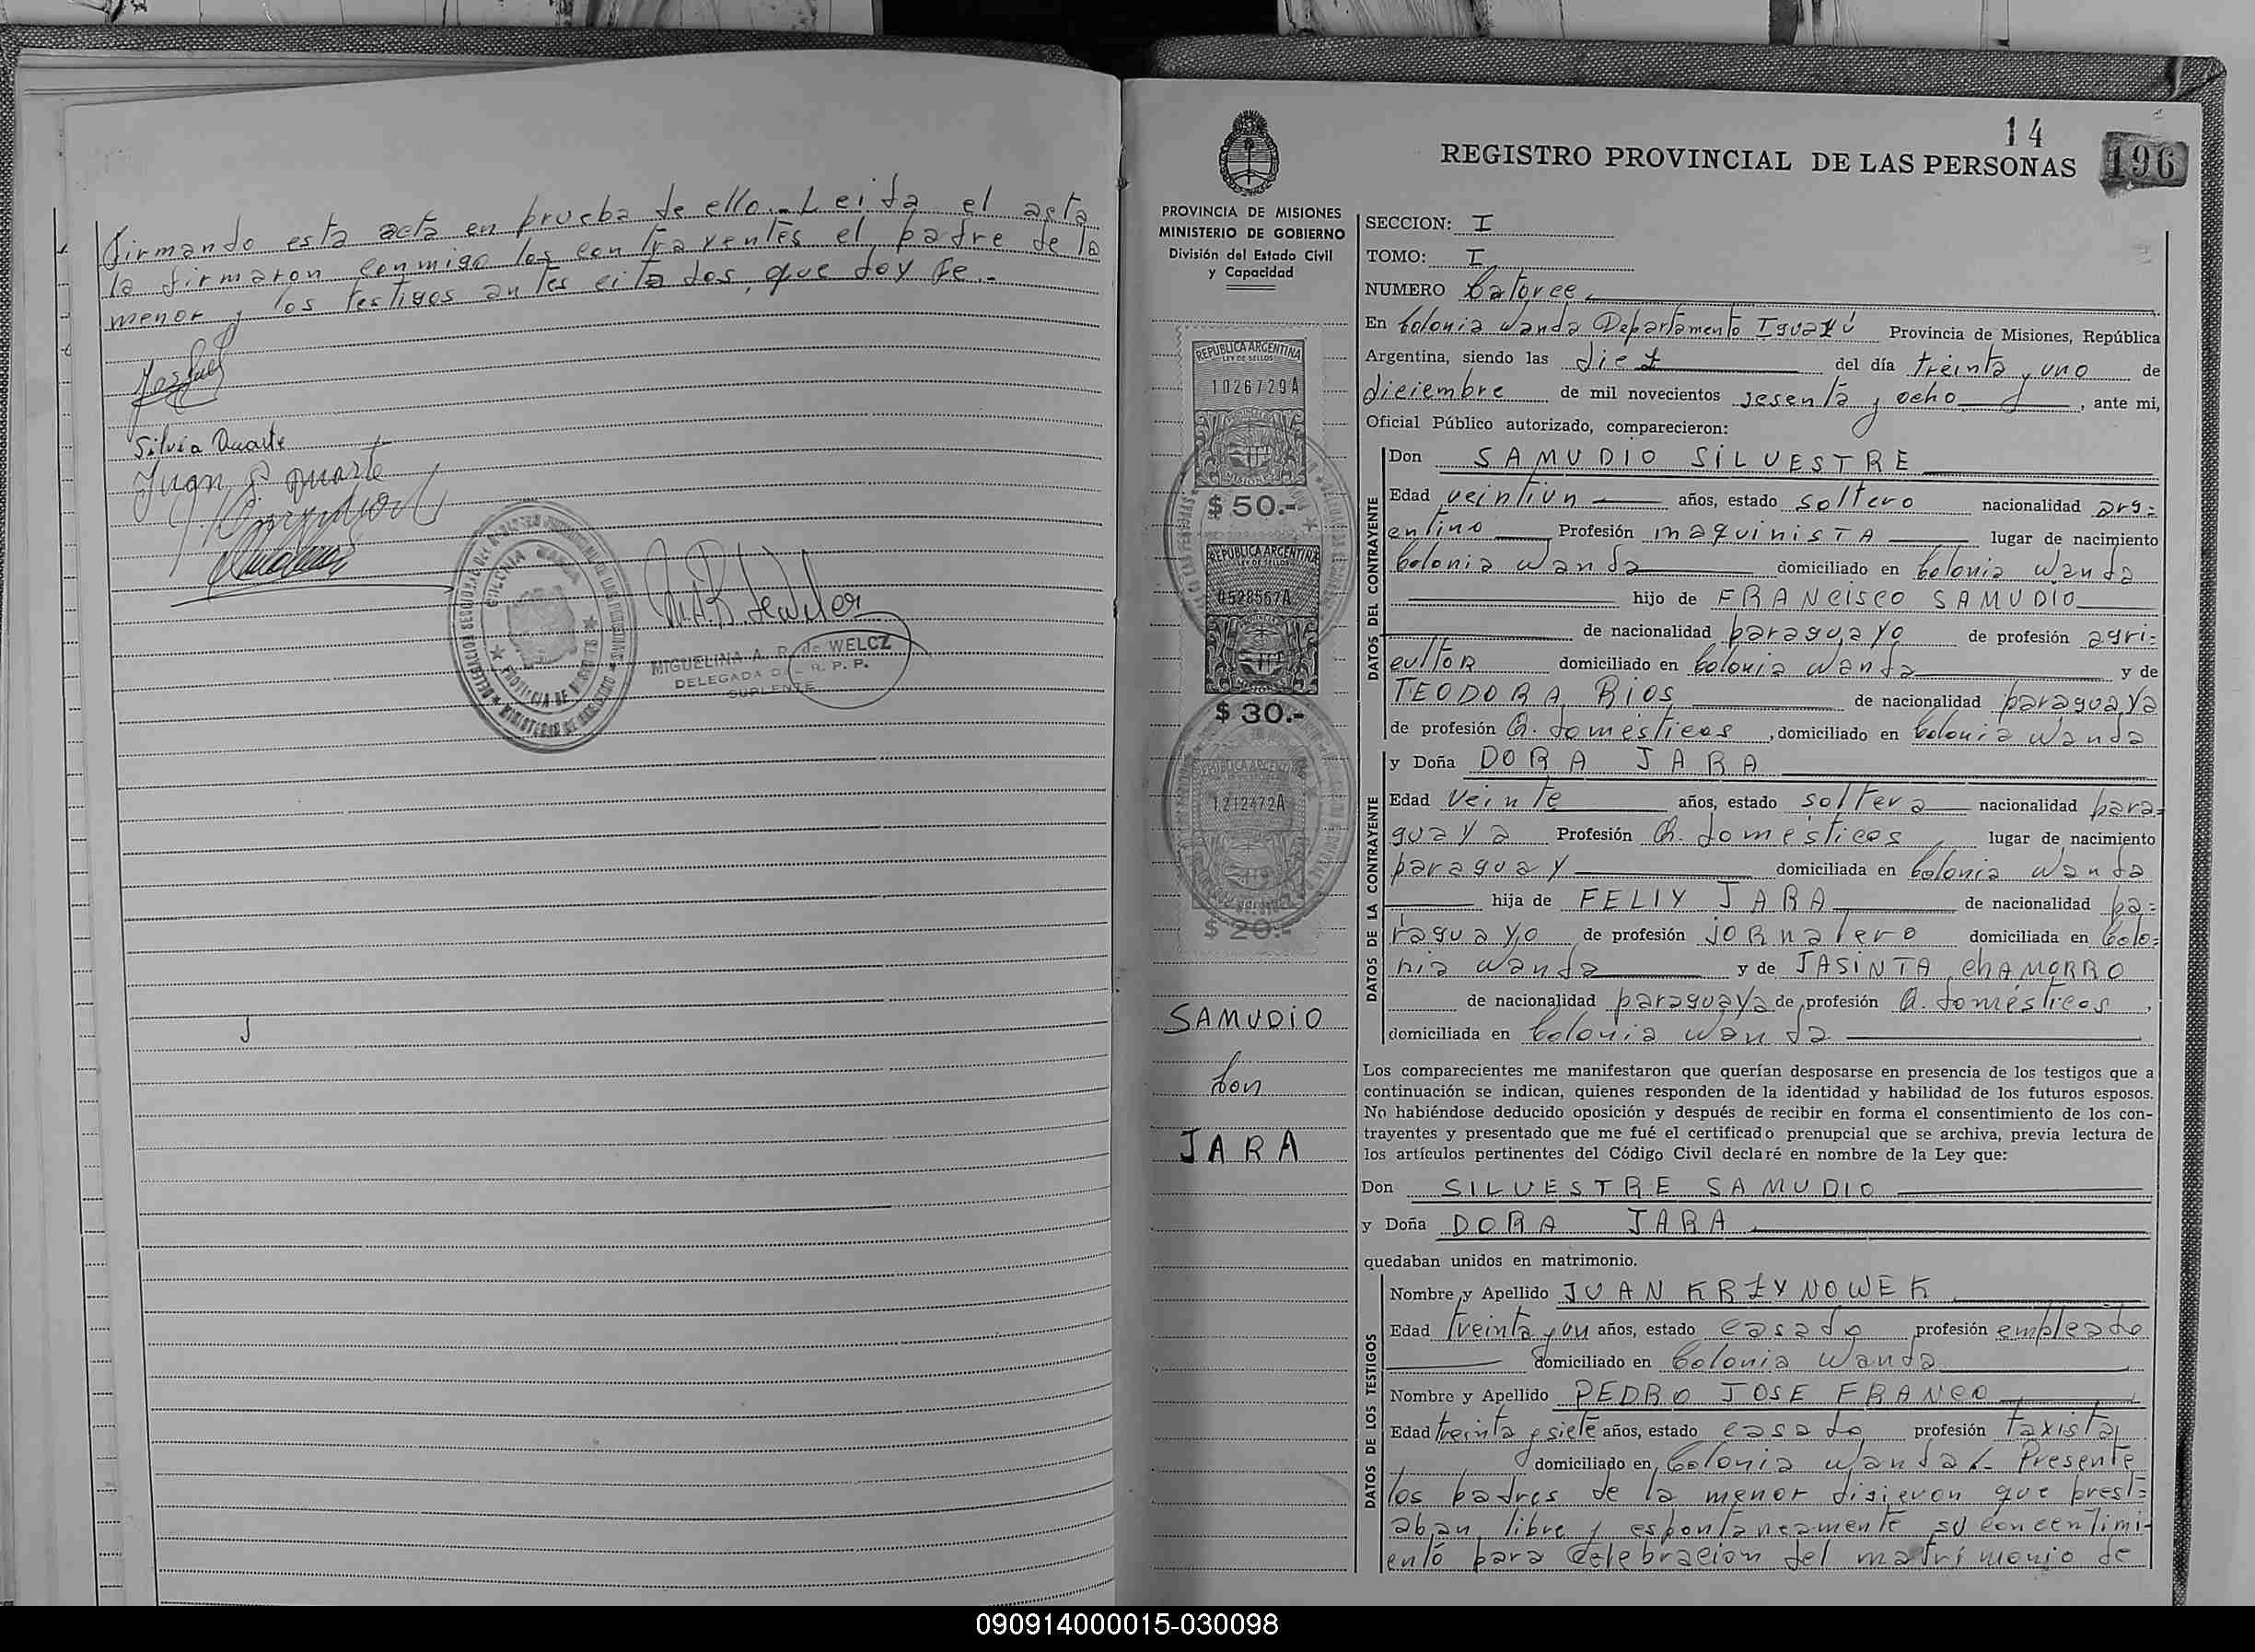 firmando esta acta en prueba de ello.- Leida el acta
la firmaron conmigo los contrayentes el padre de la
menor y los testigos antes citados, que doy fe.-
Silvia Duarte
Juan Duarte
DELEGACION SECCIONAL DEL REGISTRO PROVINCIAL DE LAS PERSONAS
COLONIA WANDA
PROVINCIA DE MISIONES
MINISTERIO DE GOBIERNO
MIGUELINA A. R. de WELCZ
DELEGADA DEL R. P. P.
SUPLENTE
14
REGISTRO PROVINCIAL DE LAS PERSONAS 196
PROVINCIA DE MISIONES
MINISTERIO DE GOBIERNO
División del Estado Civil
y Capacidad
REPUBLICA ARGENTINA
LEY DE SELLOS
1026729A
$ 50.-
REPUBLICA ARGENTINA
LEY DE SELLOS
0528567A
$ 30.-
REPUBLICA ARGENTINA
1212472A
$ 20.-
SAMUDIO
Con
JARA
SECCION: I
TOMO: I
NUMERO Catorce
En Colonia Wanda Departamento Iguazú Provincia de Misiones, República
Argentina, siendo las diez del día treinta y uno de
diciembre de mil novecientos sesenta y ocho, ante mi,
Oficial Público autorizado, comparecieron:
DATOS DEL CONTRAYENTE
Don SAMUDIO SILVESTRE
Edad veintiun años, estado soltero nacionalidad arg=
entino Profesión maquinisTA lugar de nacimiento
Colonia Wanda domiciliado en Colonia Wanda
hijo de FRANCisCO SAMUDIO
de nacionalidad paraguayo de profesión agri=
cultor domiciliado en Colonia Wanda y de
TEODORA RIOS de nacionalidad paraguaya
de profesión Q. domésticos, domiciliado en Colonia Wanda
DATOS DE LA CONTRAYENTE
y Doña DORA JARA
Edad veinte años, estado soltera nacionalidad para=
guaya Profesión Q. domésticos lugar de nacimiento
paraguay domiciliada en Colonia Wanda
hija de FELIY JARA de nacionalidad pa=
raguayo de profesión jornalero domiciliada en Colo=
nia Wanda y de JASINTA ChAMORRO
de nacionalidad paraguaya de profesión Q. domésticos,
domiciliada en Colonia Wanda
Los comparecientes me manifestaron que querían desposarse en presencia de los testigos que a
continuación se indican, quienes responden de la identidad y habilidad de los futuros esposos.
No habiéndose deducido oposición y después de recibir en forma el consentimiento de los con-
trayentes y presentado que me fué el certificado prenupcial que se archiva, previa lectura de
los artículos pertinentes del Código Civil declaré en nombre de la Ley que:
Don SILVESTRE SAMUDIO
y Doña DORA JARA
quedaban unidos en matrimonio.
DATOS DE LOS TESTIGOS
Nombre y Apellido JUAN KRZYNOWEK
Edad treinta y un años, estado casado profesión empleado
domiciliado en Colonia Wanda
Nombre y Apellido PEDRO JOSE FRANCO
Edad treinta y siete años, estado casado profesión taxista
domiciliado en Colonia Wanda.- Presente
los padres de la menor digieron que prest=
aban libre y espontaneamente su concentimi-
ento para celebracion del matrimonio de
090914000015-030098